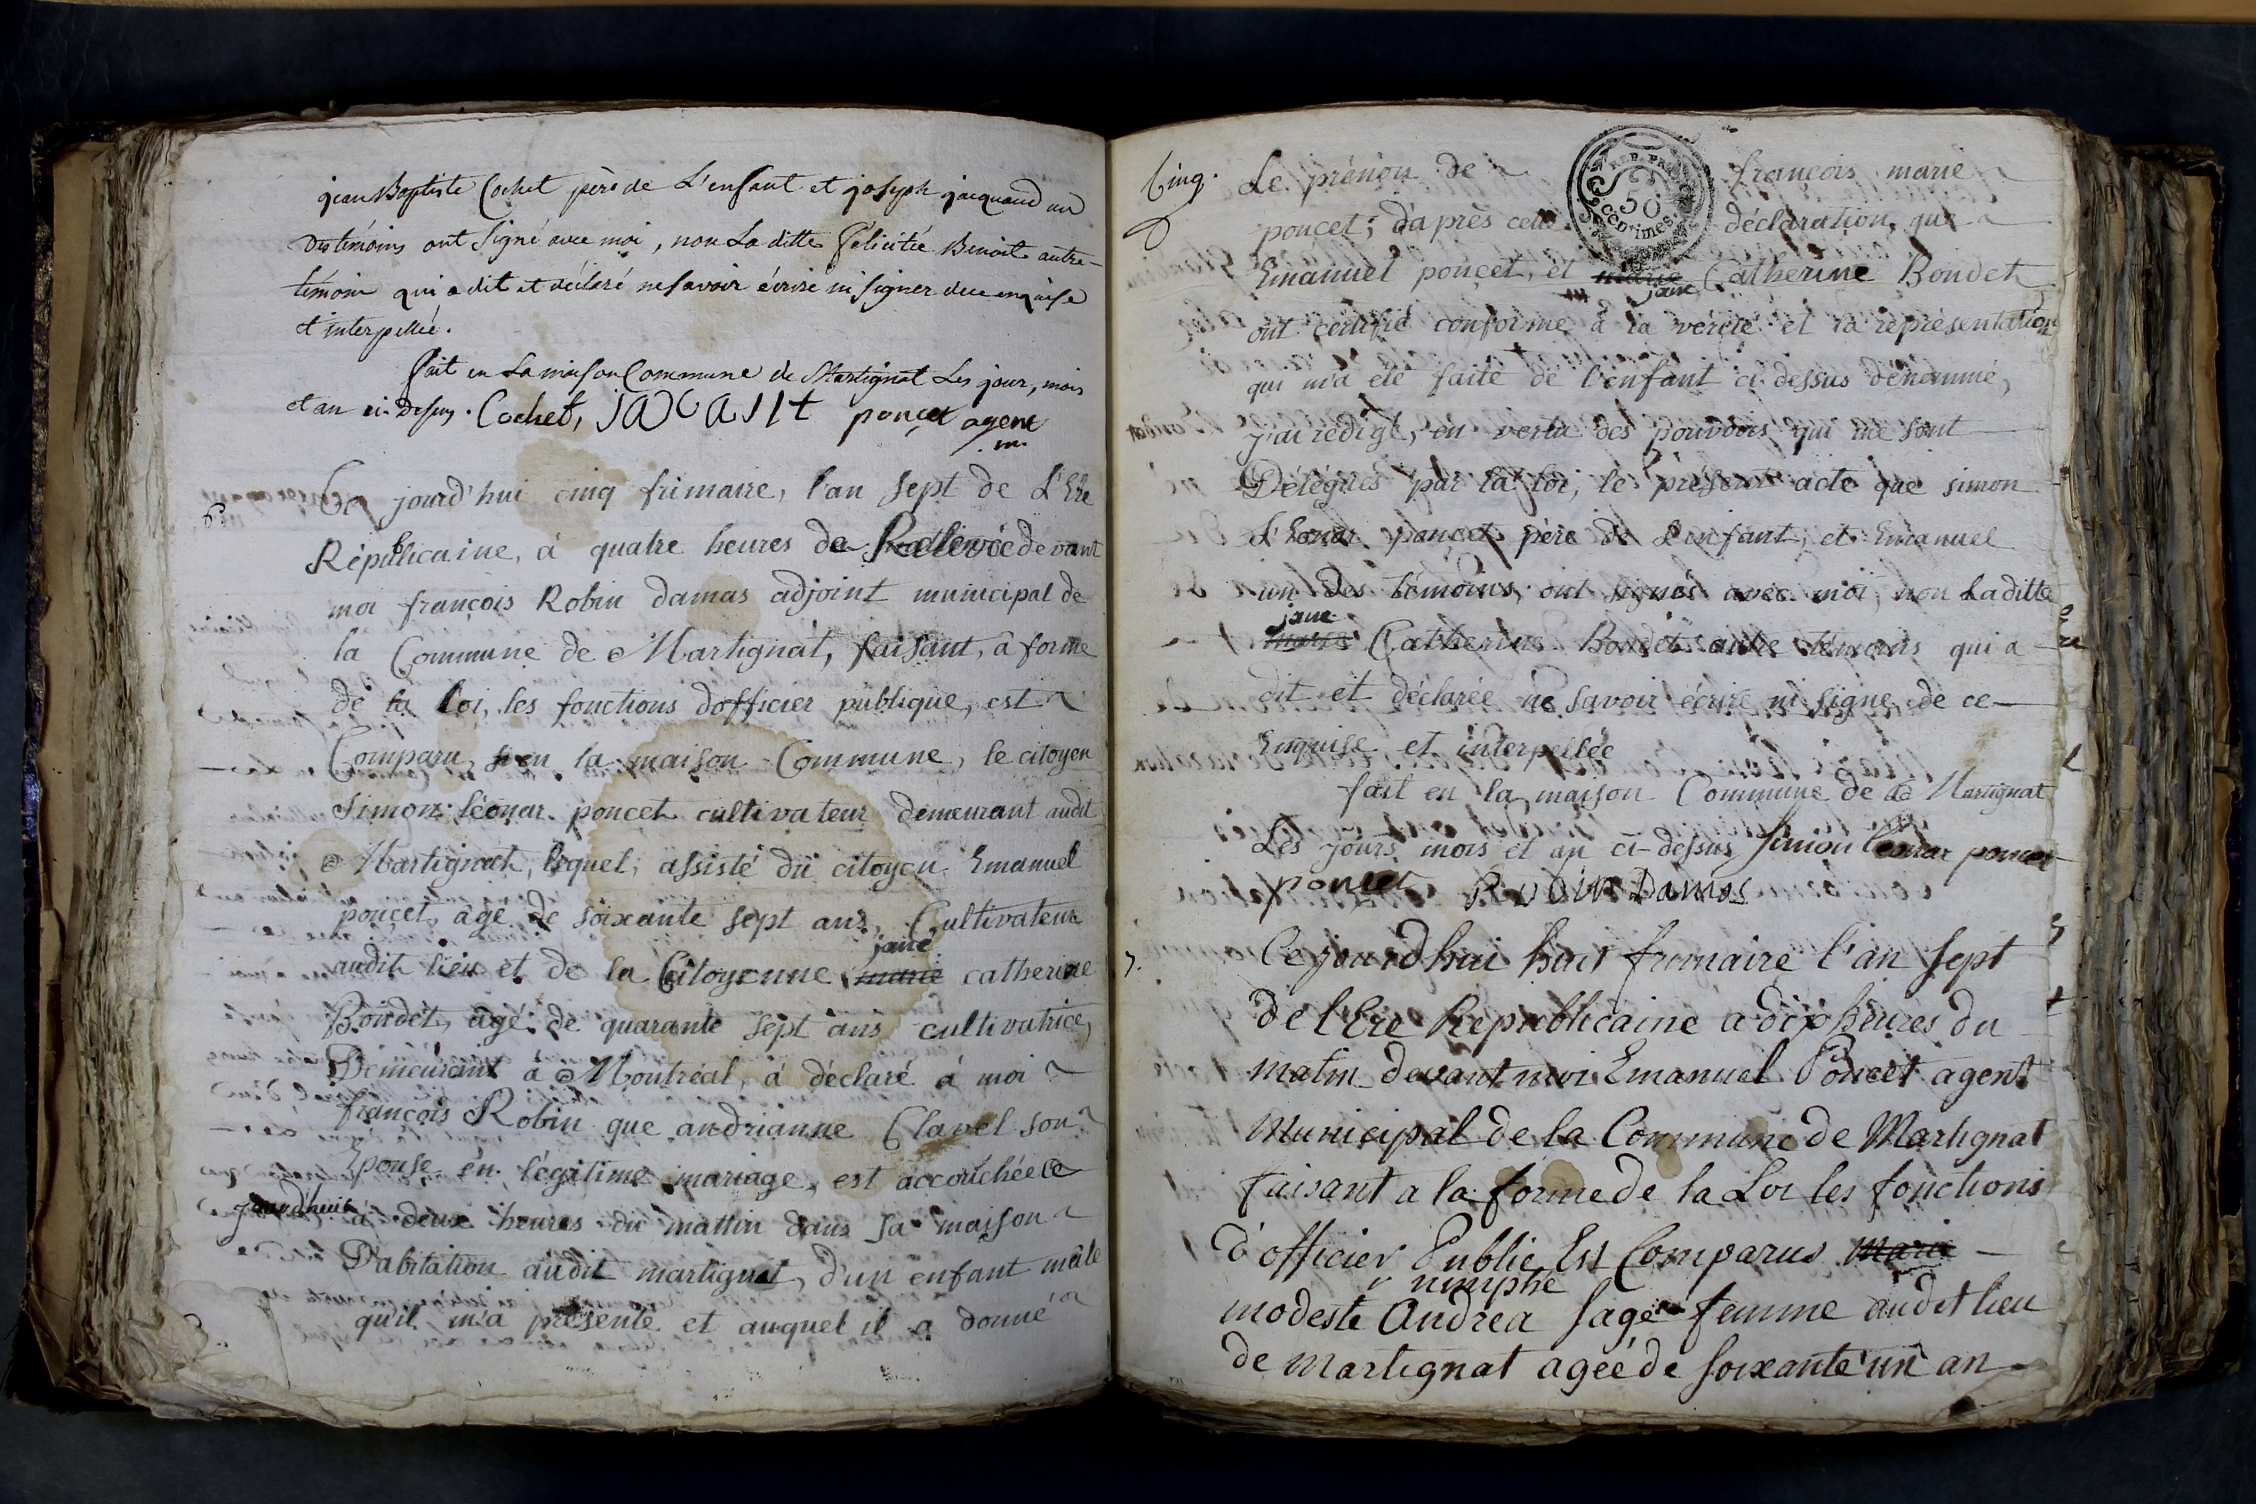 jean Baptiste Cochet père de L'enfant et joseph jacquand un
des témoins ont signé avec moi, non La ditte Félicitée Benoit autre
témoin qui a dit et déclaré ne savoir écrire ni signer de ce enquise
et interpellée.
Fait en La maison Commune de Martignat Les jour, mois
et an ci-dessus. Cochet, poncet agent
m.
6
Ce jourd'hui cinq frimaire, l'an sept de L'Ere
Républicaine, à quatre heures de Rellevée devant
moi françois Robin damas adjoint municipal de
la Commune de Martignat, faisant, a forme
de la loi, les fonctions d'officier publique, est
Comparu, en la maison Commune, le citoyen
Simon léonar poncet cultivateur demeurant audit
Martignat, lequel, assisté du citoyen Emanuel
poncet, agé de soixante sept ans, Cultivateur
jane
audit lieu et de la Citoyenne marie catherine
Bondet, agé de quarante sept ans cultivatrice,
Demeurant à Montréal, à déclaré à moi
françois Robin que andrianne Clavel son
Epouse en légitime mariage, est accouchée ce
jourd'huit à deux heures du mattin dans sa maison
D'abitation audit martignat, d'un enfant mâle
qu'il m'a présenté et auquel il a donné
Cinq.
Le prénon de françois marie
REP. FRA.
50
centimes
poncet; d'après cette déclaration, que
Emanuel poncet, et marie Catherine Bondet
jane
ont certifié conforme à la vérité et la représentation
qui m'a été faite de l'enfant ci-dessus dénommé,
j'ai rédigé, en vertu des pouvoirs qui me sont
Délégués par la loi, le présent acte que simon
L'éonar poncet père de L'enfant, et Emanuel
un des témoins, ont signés avec moi, non La ditte
jane
marie Catherine Bondet autre témoins qui a
dit et déclarée ne savoir écrire ni signe, de ce
Enquise et interpellée
fait en la maison Commune de de Martignat
Les jours mois et an ci-dessus Simon léonar poncet
poncet Robin Damas
7.
Ce jourdhui huit frimaire l'an sept
de l'Ere Republicaine a dix heures du
matin devant moi Emanuel Poncet agent
Municipal de la Commune de Martignat
faisant a la forme de la Loi les fonctions
d'officier Public Est Comparus Marie
nimphe
modeste Andrea sage femme audit lieu
de Martignat ageé de soixante un an